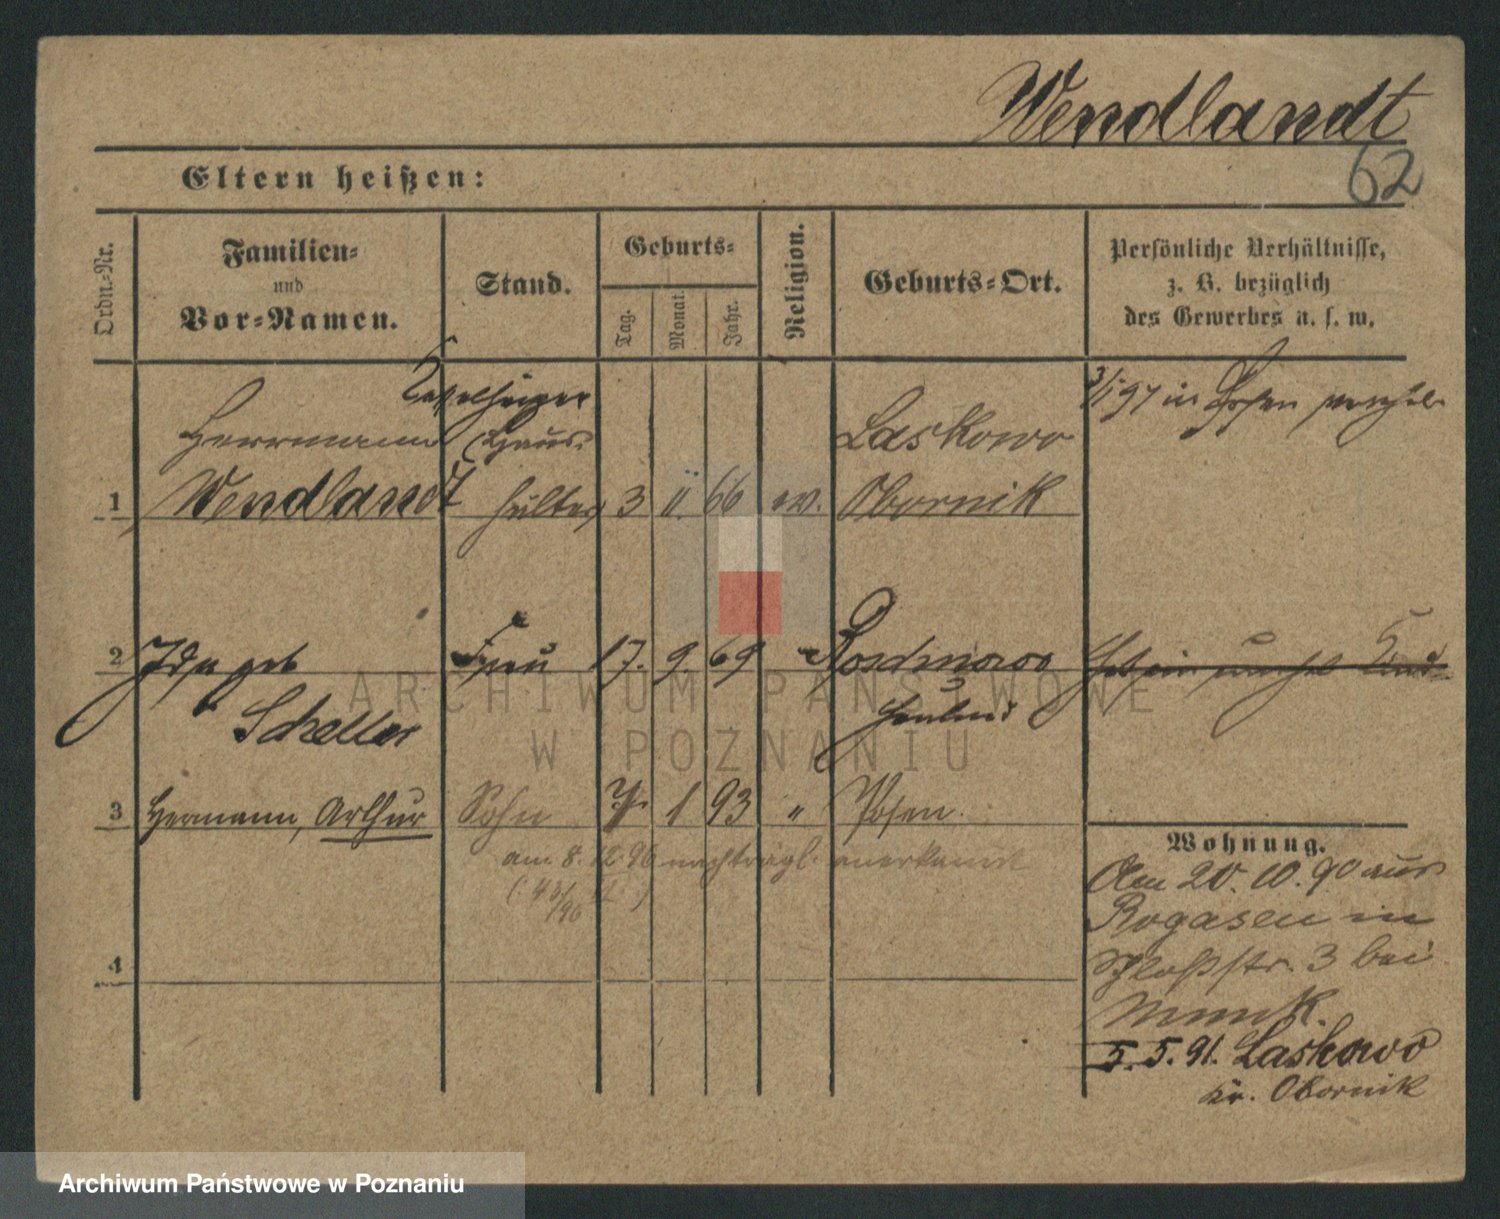 Wendlandt
62
Eltern heißen:
Ordn.-Nr.
Familien-
und
Vor-Namen.
Stand.
Geburts-
Tag.
Monat.
Jahr.
Religion.
Geburts-Ort.
Persönliche Verhältnisse,
z. B. bezüglich
des Gewerbes u. s. w.
Kesselheizer
Herrmann (Haus- Laskowo
1 Wendlandt hälter) 3 11. 66 ev. Obornik
97 in Posen
2 Ida geb Frau 17. 9. 69 "
Scheller
3 Hermann, Arthur Sohn 1 93 " Posen.
am 8. 12 96 nachträgl. anerkannt
4
Wohnung.
Am 20. 10. 90 aus
Rogasen in
Schloßstr. 3 bei
Munk.
5. 5. 91. Laskowo
Kr. Obornik
ARCHIWUM PAŃSTWOWE
W POZNANIU
Archiwum Państwowe w Poznaniu